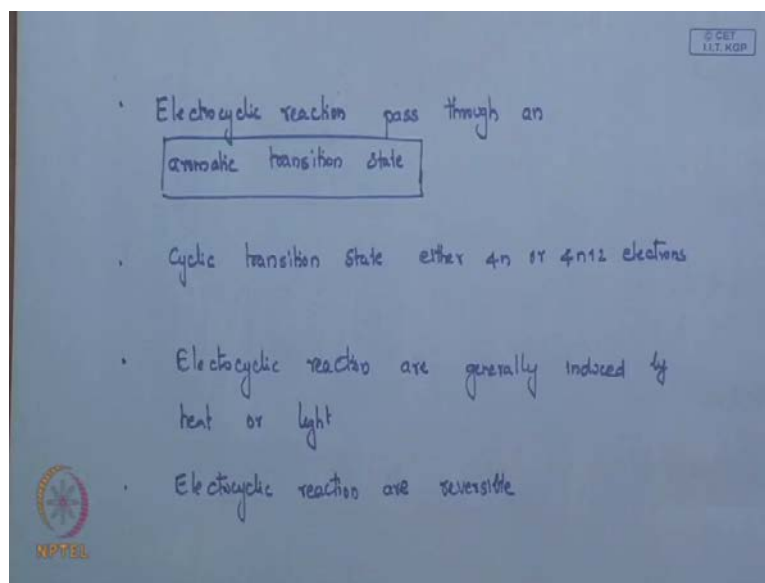 © CET
I.I.T. KGP
· Electrocyclic reaction pass through an
aromatic transition state
· Cyclic transition state either 4n or 4n+2 electrons
· Electocyclic reaction are generally induced by
heat or light
· Electrocyclic reaction are reversible
NPTEL